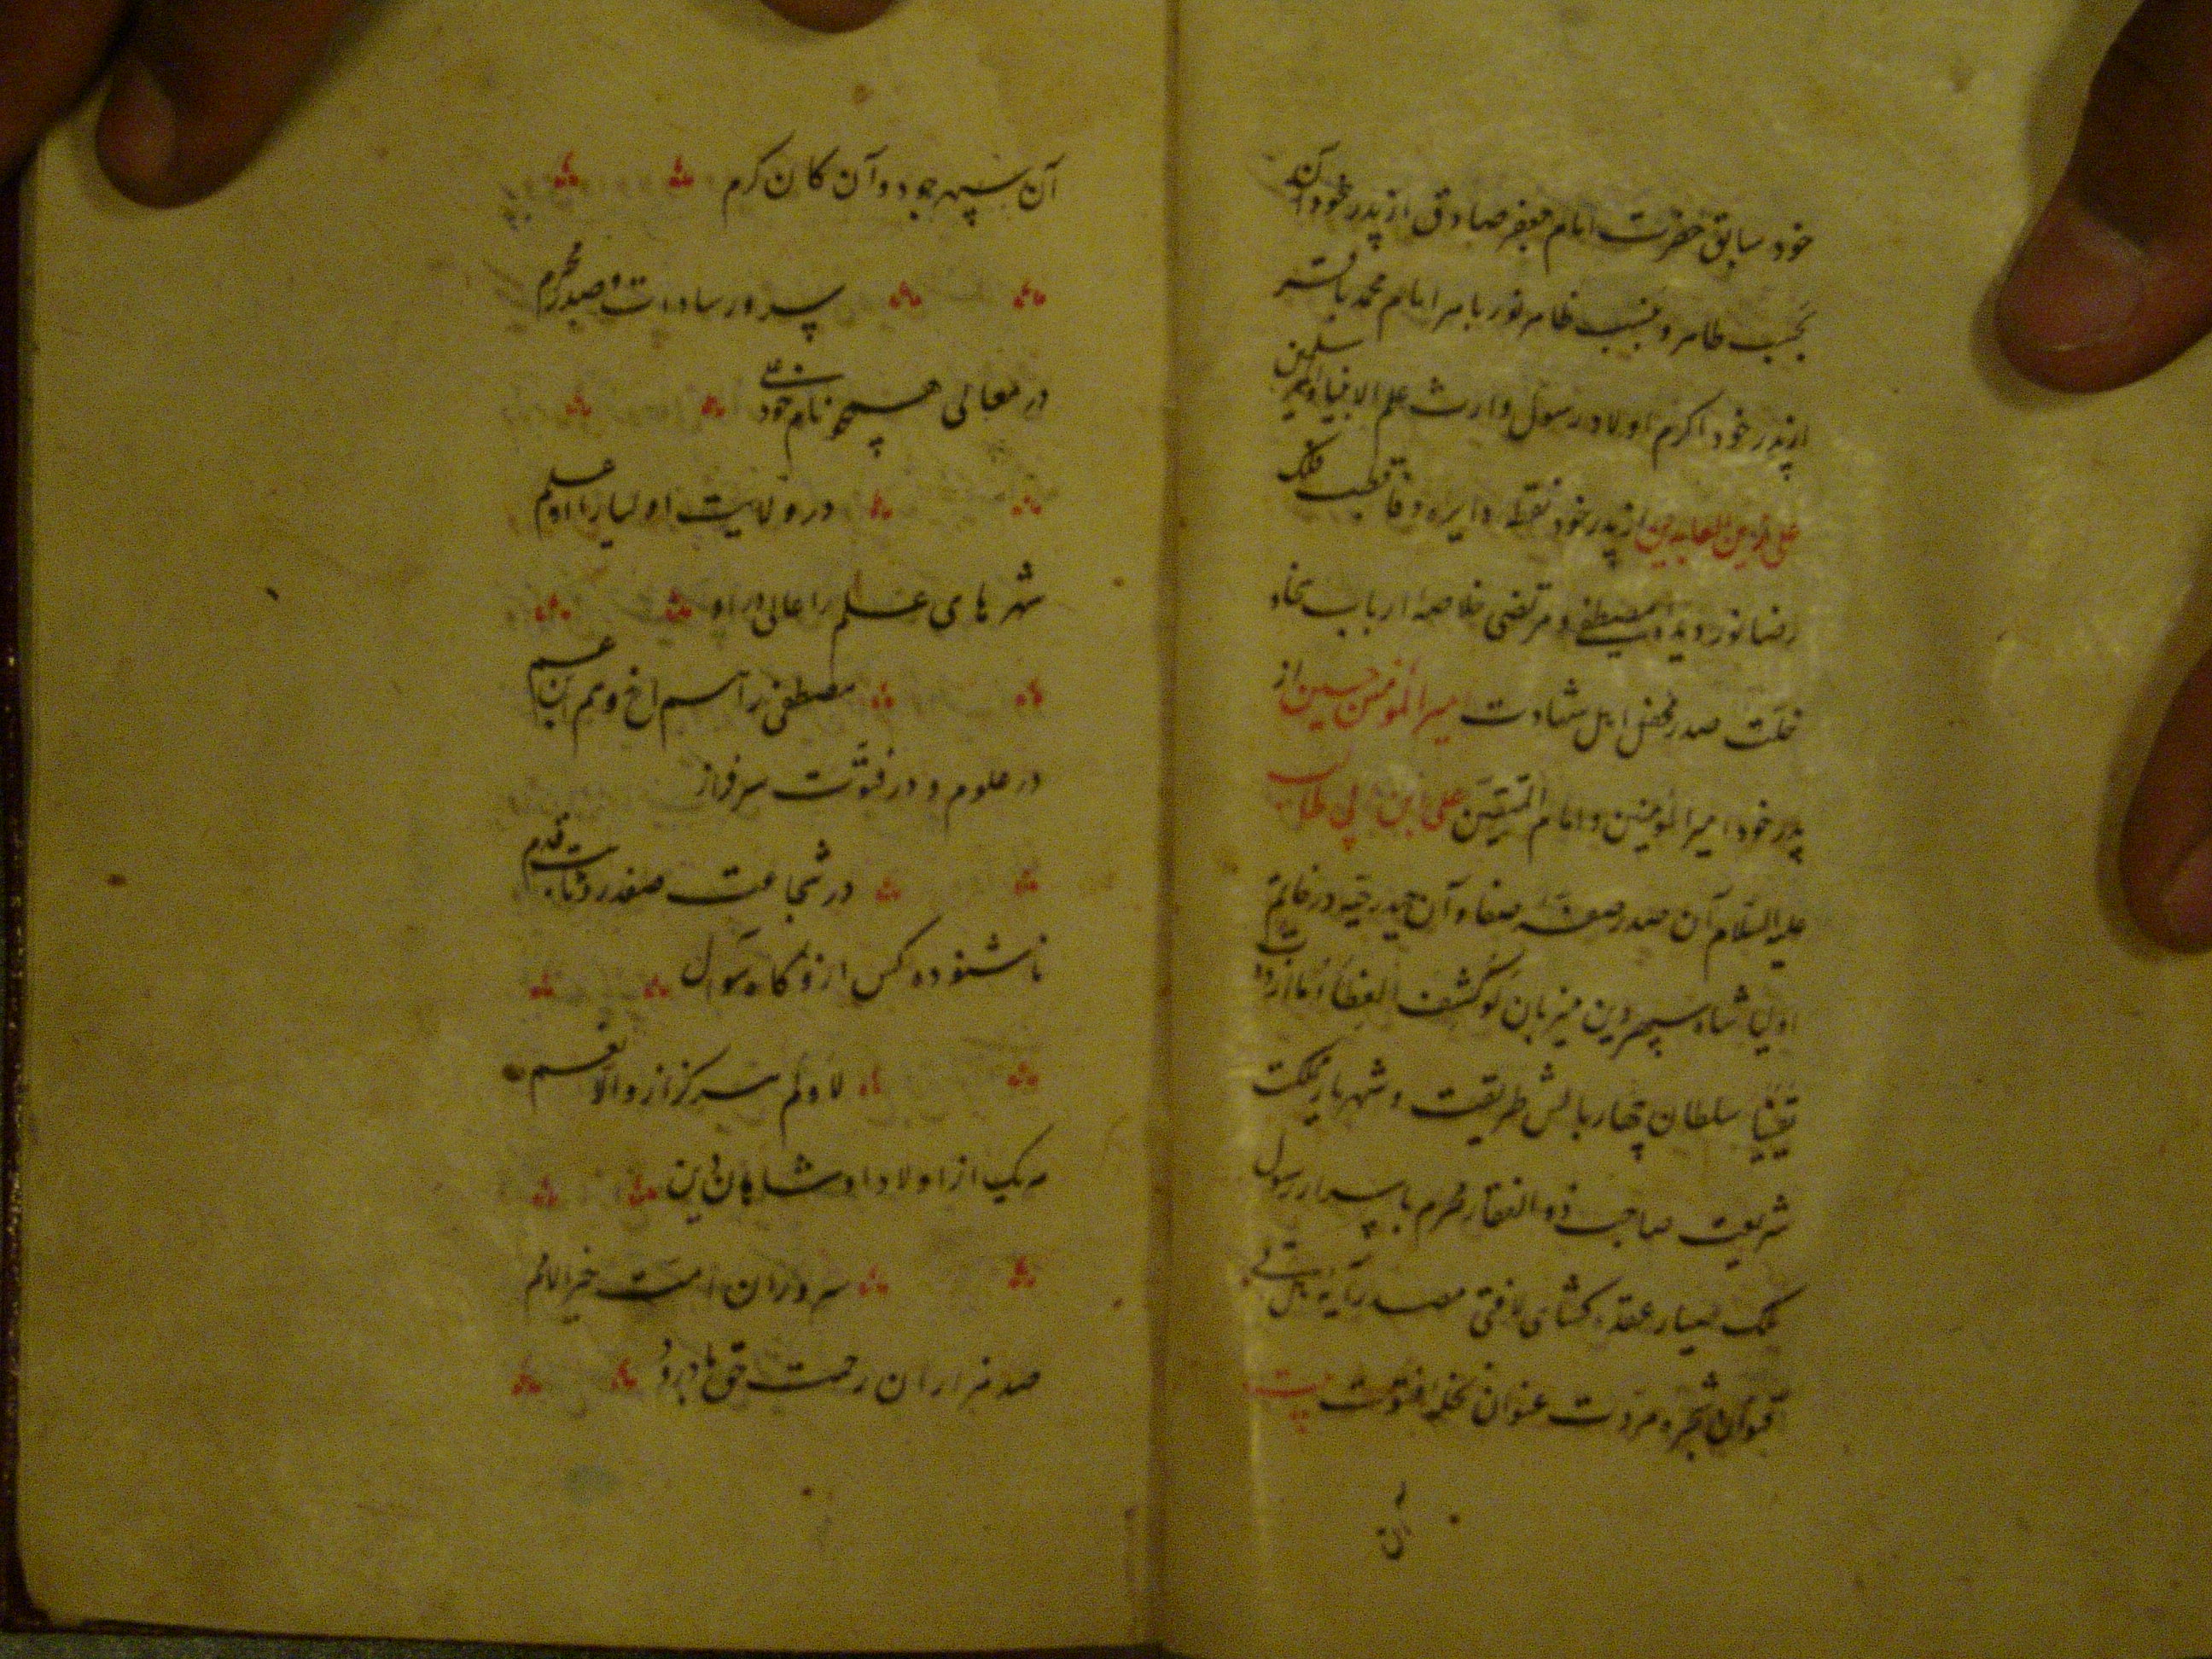 خود سابق حضرت امام جعفر صادق از پدر خود آن
بحسب طاهر و بنسب ظاهر نور باهر امام محمد باقر
از پدر خود اکرم اولاد رسول وارث علم الانبیا و المرسلین
علی زین العابدین از پدر خود نقطه دایره وفا قطب فلک
رضا نور دیده مصطفی و مرتضی خلاصه ارباب
خلت صدر محفل اهل شهادت امیر المومنین حسین از
پدر خود امیر المومنین و امام المتقین علی ابن ابی طالب
علیه السلام آن صدر صفه صفا و آن حیدر خیبر در خاتم
اولیا شاه سپهر دین میزبان لو کشف الغطا ما ازددت
یقینا سلطان چهار بالش طریقت و شهریار مملکت
شریعت صاحب ذو الفقار محرم با اسرار رسول
عقده کشای لافتی مصدر آیه هل اتی
مروت عنوان فتوت بیت
آن
آن سپهر جود و آن کان کرم
سرور سادات و صدر محترم
در معالی همچو نام خود علی
در ولایت اولیا را او علم
شهر های علم را عالی در او
مصطفی را اسم اخ و هم ابن عم
در علوم و در فتوت سرفراز
در شجاعت صفدر و ثابت قدم
ناشنوده کس ازو گاه سوال
لا و لم هرگز ازو الا نعم
هر یک از اولاد او شاهان دین
سروران امت خیر الامم
صد هزاران رحمت حق بر او